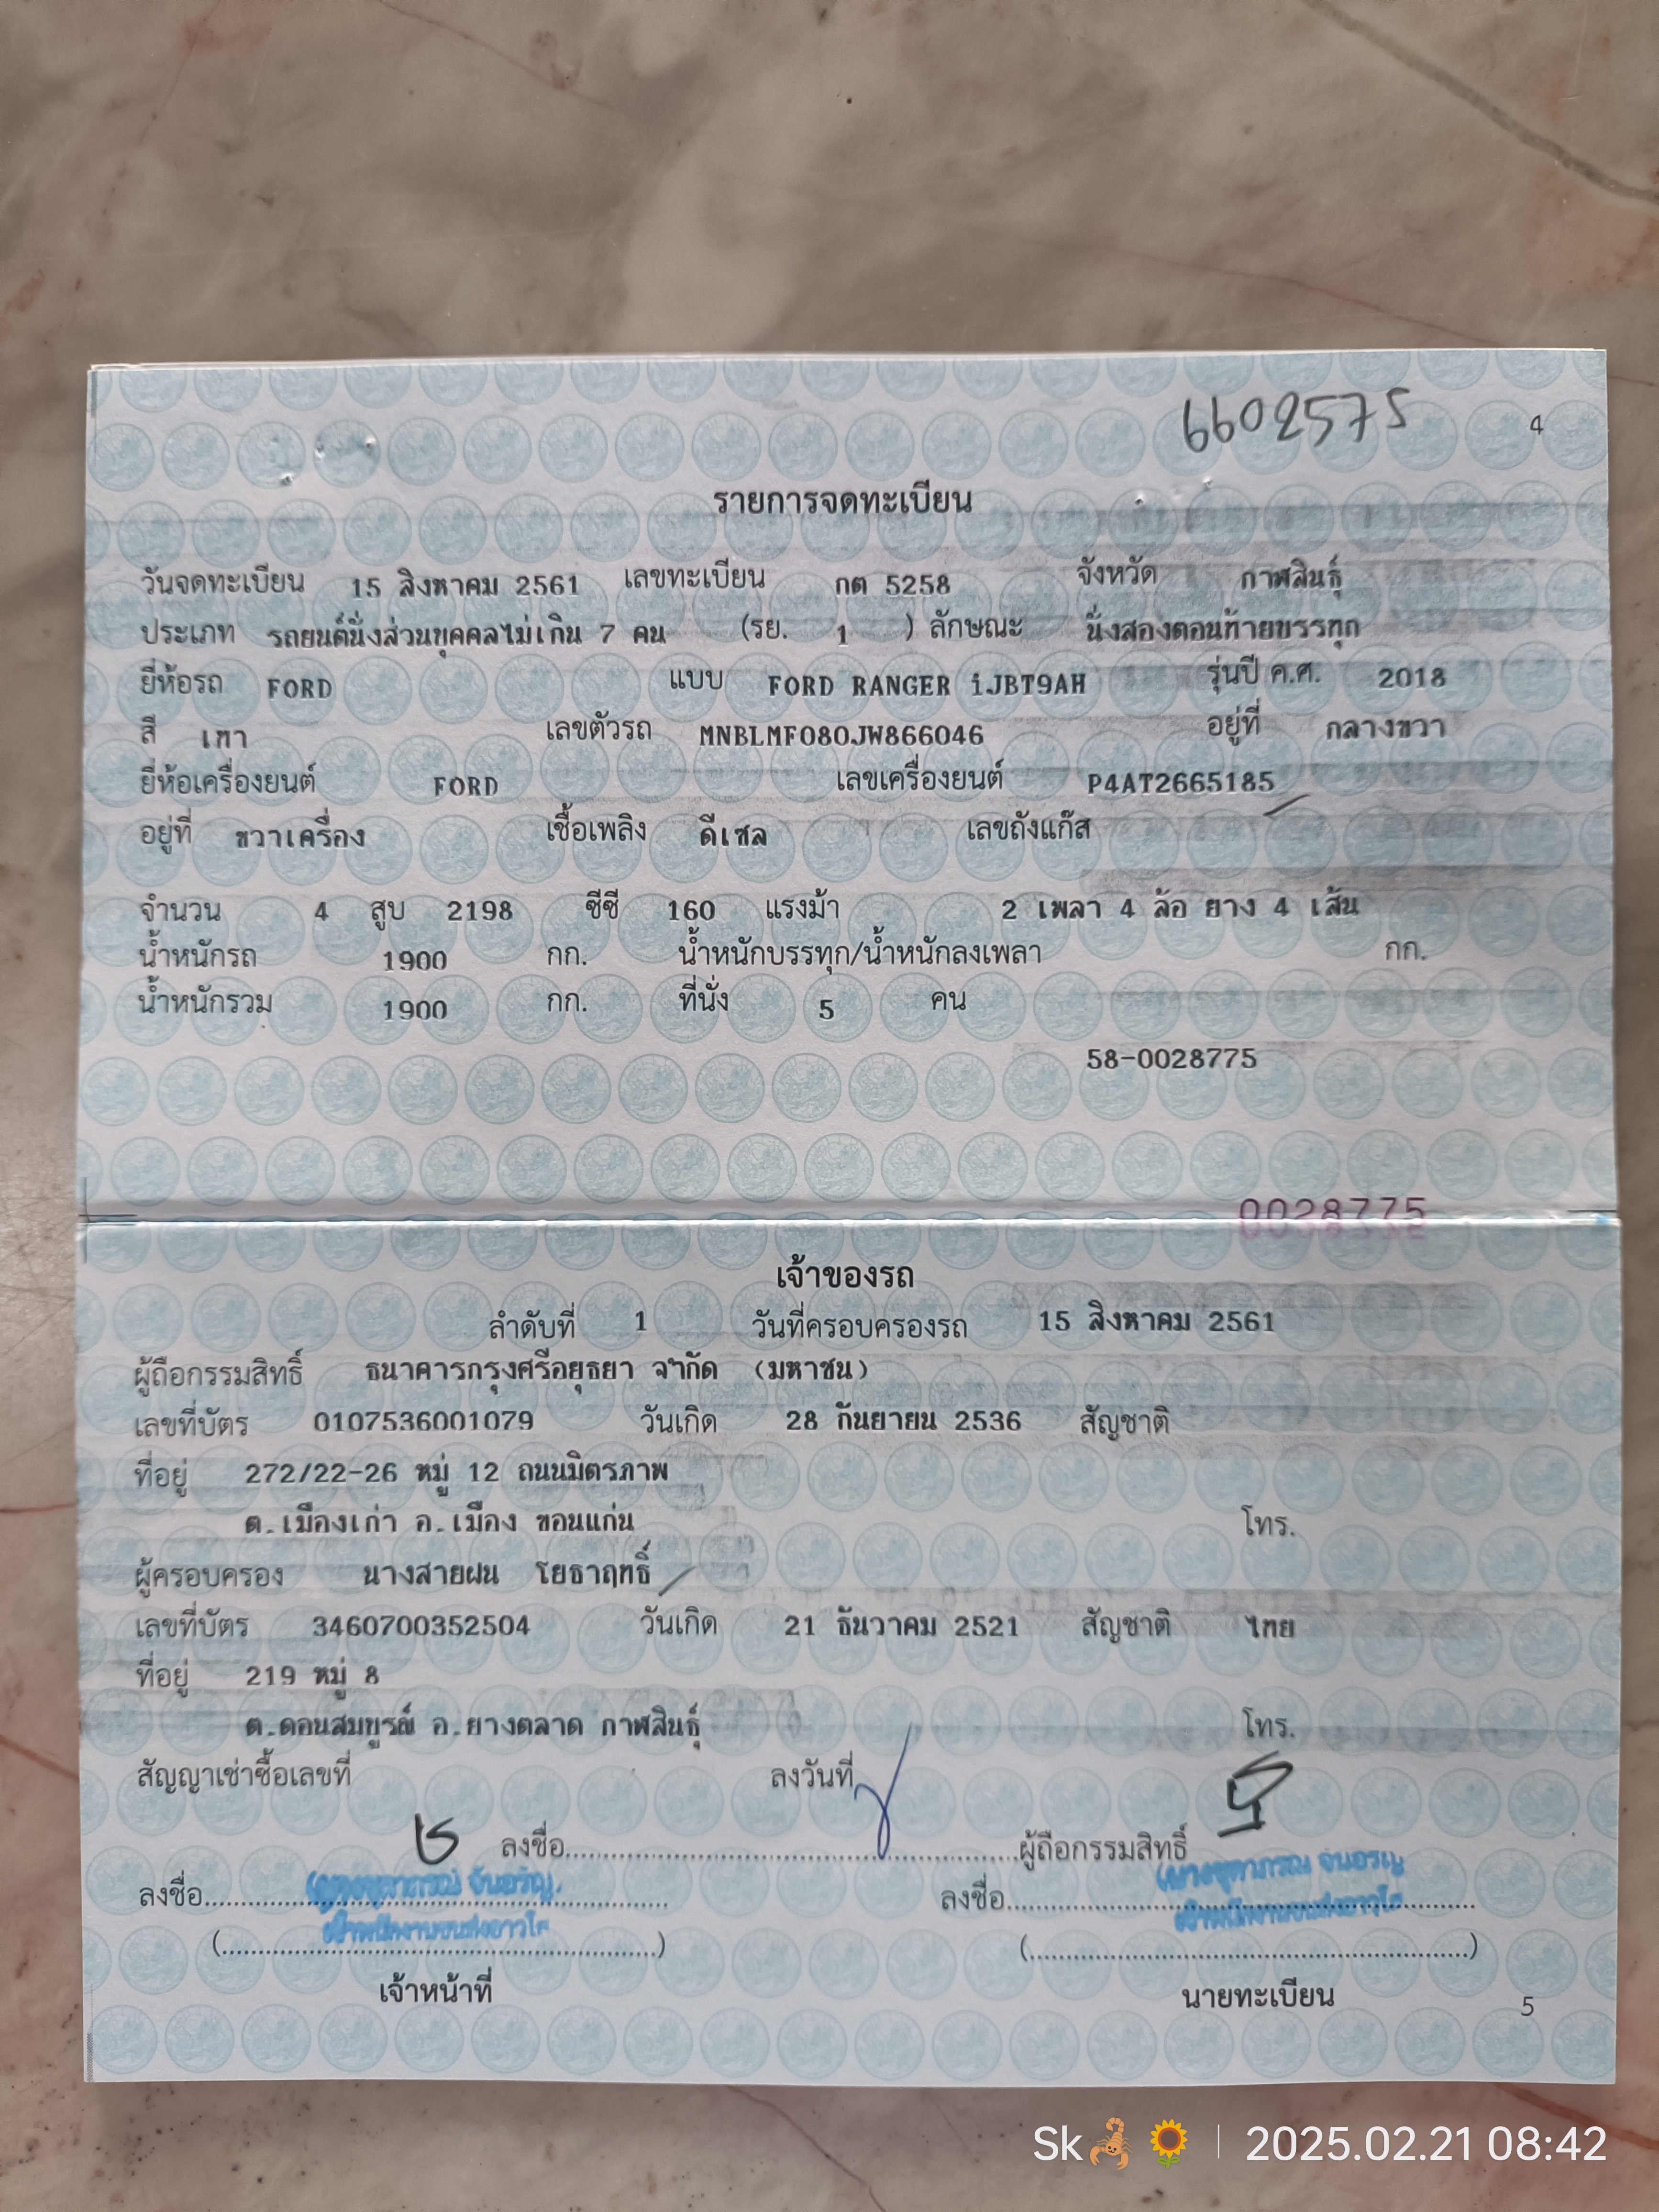 6602575
4
รายการจดทะเบียน
วันจดทะเบียน 15 สิงหาคม 2561 เลขทะเบียน กต 5258 จังหวัด กาฬสินธุ์
ประเภท รถยนต์นั่งส่วนบุคคลไม่เกิน 7 คน (รย. 1 ) ลักษณะ นั่งสองตอนท้ายบรรทุก
ยี่ห้อรถ FORD แบบ FORD RANGER iJBT9AH รุ่นปี ค.ศ. 2018
สี เทา เลขตัวรถ MNBLMF080JW866046 อยู่ที่ กลางขวา
ยี่ห้อเครื่องยนต์ FORD เลขเครื่องยนต์ P4AT2665185
อยู่ที่ ขวาเครื่อง เชื้อเพลิง ดีเซล เลขถังแก๊ส
จำนวน 4 สูบ 2198 ซีซี 160 แรงม้า 2 เพลา 4 ล้อ ยาง 4 เส้น
น้ำหนักรถ 1900 กก. น้ำหนักบรรทุก/น้ำหนักลงเพลา กก.
น้ำหนักรวม 1900 กก. ที่นั่ง 5 คน
58-0028775
0028775
เจ้าของรถ
ลำดับที่ 1 วันที่ครอบครองรถ 15 สิงหาคม 2561
ผู้ถือกรรมสิทธิ์ ธนาคารกรุงศรีอยุธยา จำกัด (มหาชน)
เลขที่บัตร 0107536001079 วันเกิด 28 กันยายน 2536 สัญชาติ
ที่อยู่ 272/22-26 หมู่ 12 ถนนมิตรภาพ
ต.เมืองเก่า อ.เมือง ขอนแก่น โทร.
ผู้ครอบครอง นางสายฝน โยธาฤทธิ์
เลขที่บัตร 3460700352504 วันเกิด 21 ธันวาคม 2521 สัญชาติ ไทย
ที่อยู่ 219 หมู่ 8
ต.ดอนสมบูรณ์ อ.ยางตลาด กาฬสินธุ์ โทร.
สัญญาเช่าซื้อเลขที่ ลงวันที่
ลงชื่อ............ผู้ถือกรรมสิทธิ์
ลงชื่อ............ ลงชื่อ............
(............) (............)
เจ้าหน้าที่ นายทะเบียน
5
Sk🦂🌻 | 2025.02.21 08:42